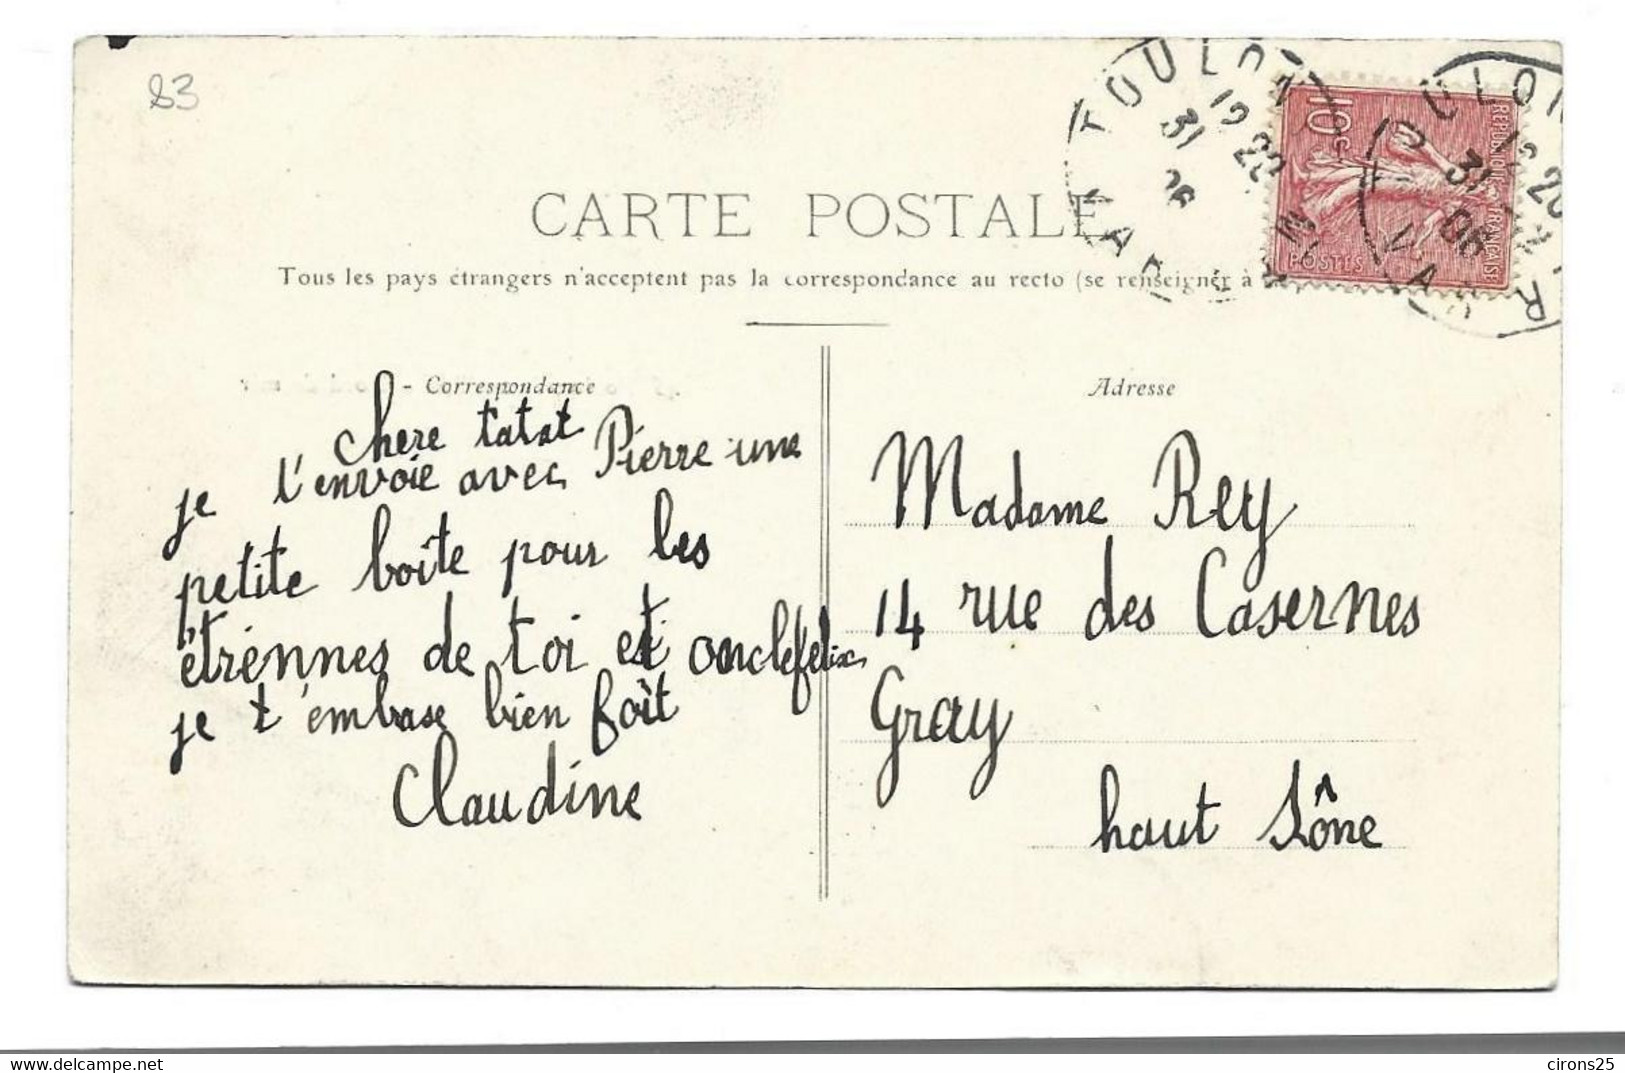 83
TOULON
12 22
31
VAR
TOULON
12 20
31 12
06
VAR
10 c
REPUBLIQUE FRANÇAISE
POSTES
CARTE POSTALE
Tous les pays étrangers n'acceptent pas la correspondance au recto (se renseigner à la
Correspondance
Adresse
chere tatat
je t'envoie avec Pierre une
petite boite pour les
étrennes de toi et oncle felix
je t'embrase bien foît
Claudine
Madame Rey
14 rue des Casernes
Gray
haut Sône
cirons25